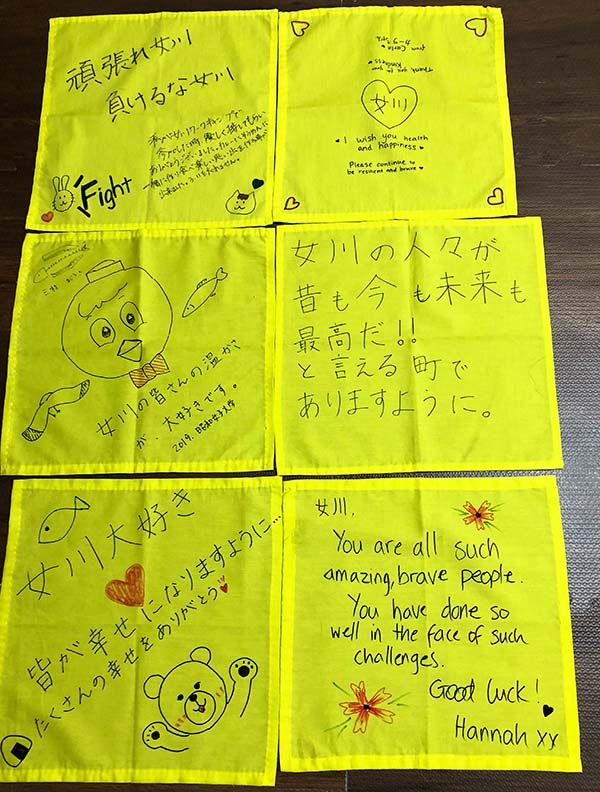 頑張れ女川
負けるな女川
Fight
from Carla
カーラより
Thank you for your
Kindness
女川
I wish you health
and happiness
Please continue to
be resilient and brave
女川の皆さんの温かさ
が、大好きです。
2019. 昭和女子大学
女川の人々が
昔も今も未来も
最高だ!!
と言える町で
ありますように。
女川大好き
皆が幸せになりますように…
たくさんの幸せをありがとう
女川,
You are all such
amazing, brave people.
You have done so
well in the face of such
challenges.
Good luck!
Hannah xx